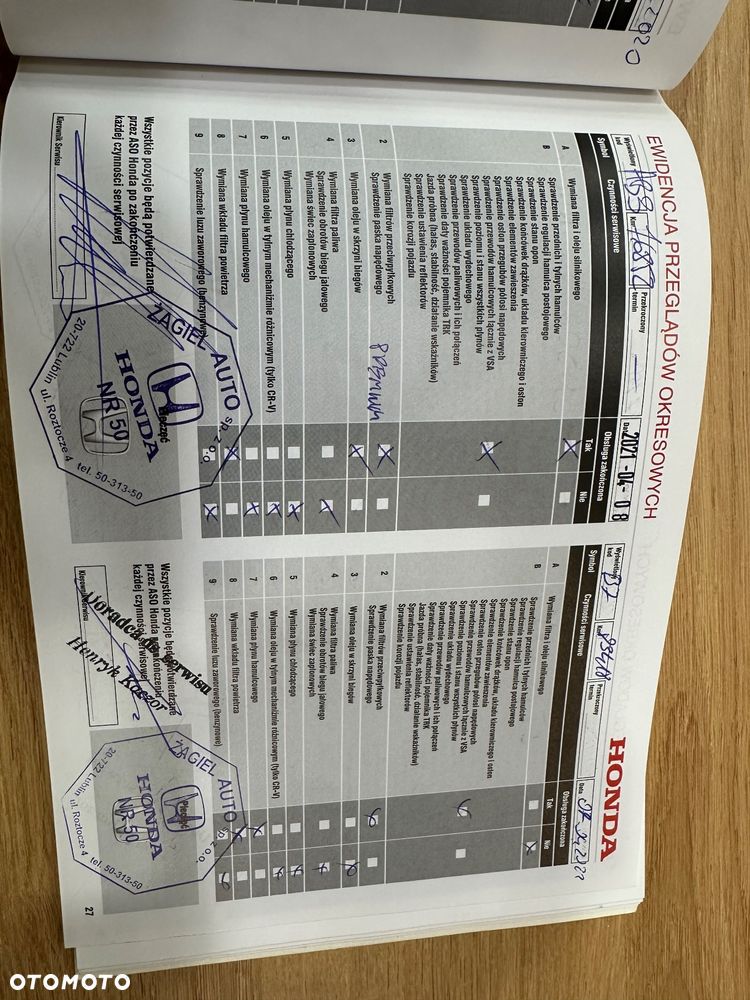 2020
EWIDENCJA PRZEGLĄDÓW OKRESOWYCH
HONDA
Wyświetlony kod
Przekroczony termin
Data 2021-04-08
Symbol
Czynności serwisowe
Obsługa zakończona
Tak
Nie
A Wymiana filtra i oleju silnikowego
B Sprawdzenie przednich i tylnych hamulców
Sprawdzenie regulacji hamulca postojowego
Sprawdzenie stanu opon
Sprawdzenie końcówek drążków, układu kierowniczego i osłon
Sprawdzenie elementów zawieszenia
Sprawdzenie osłon przegubów półosi napędowych
Sprawdzenie przewodów hamulcowych łącznie z VSA
Sprawdzenie poziomu i stanu wszystkich płynów
Sprawdzenie układu wydechowego
Sprawdzenie przewodów paliwowych i ich połączeń
Sprawdzenie daty ważności pojemnika TRK
Jazda próbna (hałas, stabilność, działanie wskaźników)
Sprawdzenie ustawienia reflektorów
Sprawdzenie korozji pojazdu
2 Wymiana filtrów przeciwpyłkowych
Sprawdzenie paska napędowego
3 Wymiana oleju w skrzyni biegów
4 Wymiana filtra paliwa
Sprawdzenie obrotów biegu jałowego
Wymiana świec zapłonowych
5 Wymiana płynu chłodzącego
6 Wymiana oleju w tylnym mechanizmie różnicowym (tylko CR-V)
7 Wymiana płynu hamulcowego
8 Wymiana wkładu filtra powietrza
9 Sprawdzenie luzu zaworowego (benzynowe)
Wszystkie pozycje będą potwierdzane
przez ASO Honda po zakończeniu
każdej czynności serwisowej
Kierownik Serwisu
Pieczęć
ŻAGIEL AUTO sp. z o.o.
HONDA
NR 50
20-722 Lublin ul. Roztocze 4 tel. 50-313-50
Wyświetlony kod
Przekroczony termin
Data
Symbol
Czynności serwisowe
Obsługa zakończona
Tak
Nie
A Wymiana filtra i oleju silnikowego
B Sprawdzenie przednich i tylnych hamulców
Sprawdzenie regulacji hamulca postojowego
Sprawdzenie stanu opon
Sprawdzenie końcówek drążków, układu kierowniczego i osłon
Sprawdzenie elementów zawieszenia
Sprawdzenie osłon przegubów półosi napędowych
Sprawdzenie przewodów hamulcowych łącznie z VSA
Sprawdzenie poziomu i stanu wszystkich płynów
Sprawdzenie układu wydechowego
Sprawdzenie przewodów paliwowych i ich połączeń
Sprawdzenie daty ważności pojemnika TRK
Jazda próbna (hałas, stabilność, działanie wskaźników)
Sprawdzenie ustawienia reflektorów
Sprawdzenie korozji pojazdu
2 Wymiana filtrów przeciwpyłkowych
Sprawdzenie paska napędowego
3 Wymiana oleju w skrzyni biegów
4 Wymiana filtra paliwa
Sprawdzenie obrotów biegu jałowego
Wymiana świec zapłonowych
5 Wymiana płynu chłodzącego
6 Wymiana oleju w tylnym mechanizmie różnicowym (tylko CR-V)
7 Wymiana płynu hamulcowego
8 Wymiana wkładu filtra powietrza
9 Sprawdzenie luzu zaworowego (benzynowe)
Wszystkie pozycje będą potwierdzane
przez ASO Honda po zakończeniu
każdej czynności serwisowej
Kierownik Serwisu
Doradca ds. serwisu
Henryk Kaczor
Pieczęć
ŻAGIEL AUTO sp. z o.o.
HONDA
NR 50
20-722 Lublin ul. Roztocze 4 tel. 50-313-50
27
OTOMOTO